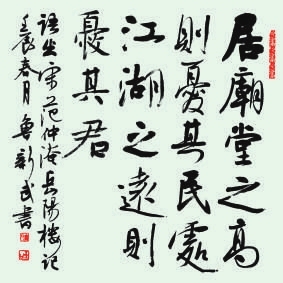 居廟堂之高
則憂其民處
江湖之遠則
憂其君
語出宋范仲淹岳陽樓記
壬辰春月魯新武書